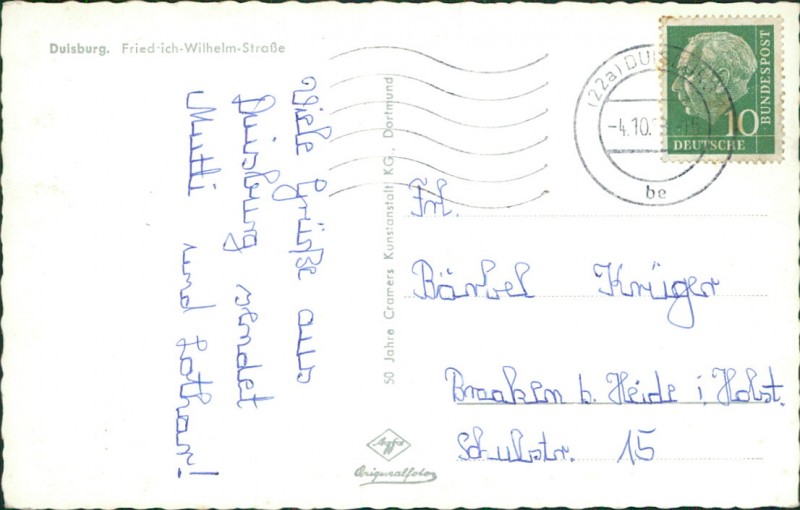 Duisburg. Friedrich-Wilhelm-Straße
Viele Grüße aus
Duisburg sendet
Mutti und Lothar!
50 Jahre Cramers Kunstanstalt KG., Dortmund
(22a) DUISBURG
-4.10.
be
10
DEUTSCHE
BUNDESPOST
Frl.
Bärbel Krüger
Braaken b. Heide i. Holst.
Schulstr. 15
Agfa
Originalfoto